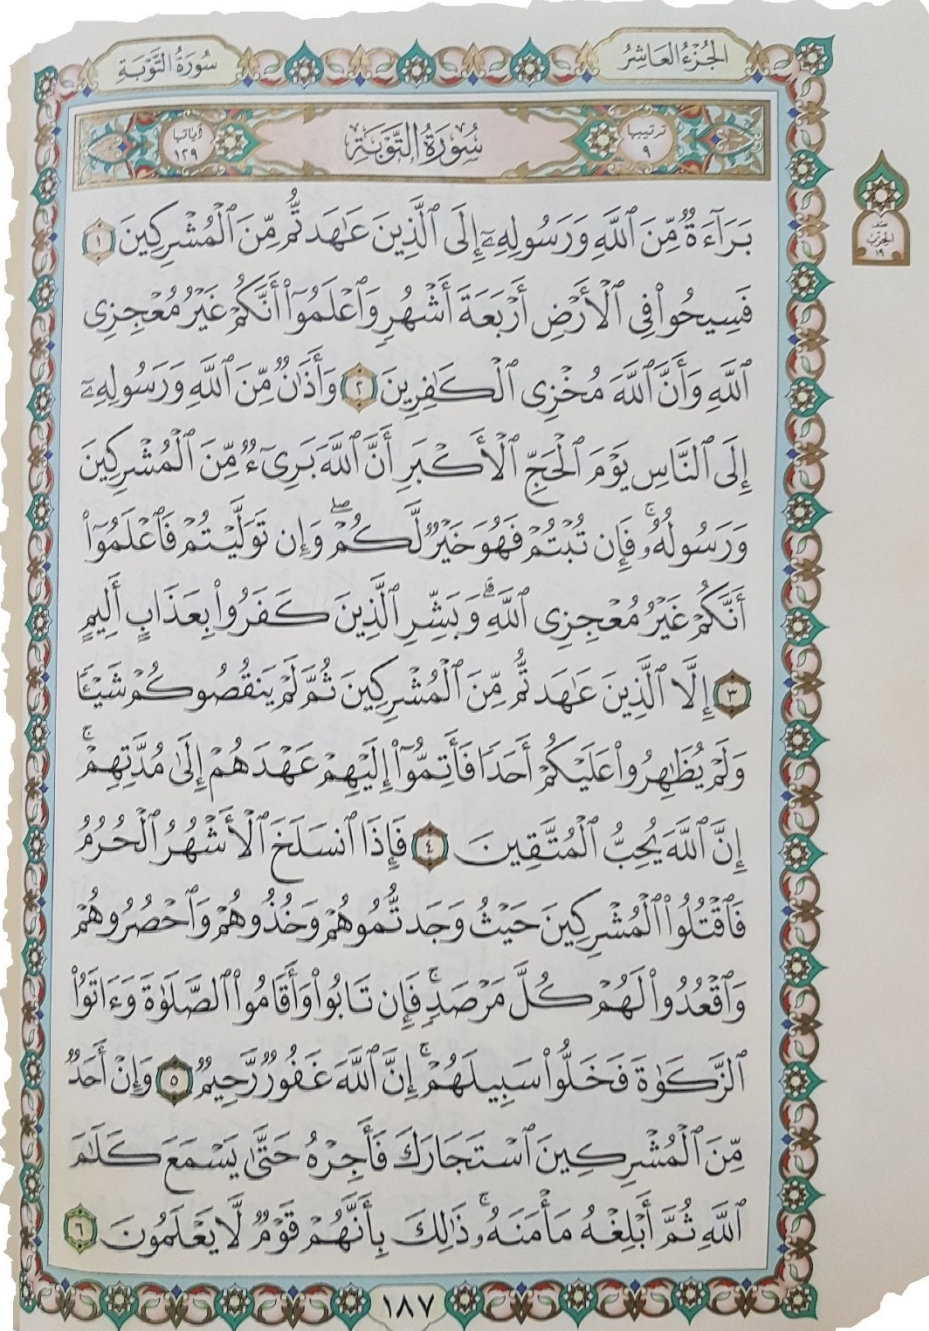 سُورَةُ التَّوْبَةِ
الجُزْءُ العَاشِرُ
ترتيبها ٩
سُورَةُ التَّوْبَةِ
آياتها ١٢٩
بَرَآءَةٌ مِّنَ ٱللَّهِ وَرَسُولِهِۦٓ إِلَى ٱلَّذِينَ عَٰهَدتُّم مِّنَ ٱلْمُشْرِكِينَ ١
نصف الحزب ١٩
فَسِيحُوا۟ فِى ٱلْأَرْضِ أَرْبَعَةَ أَشْهُرٍ وَٱعْلَمُوٓا۟ أَنَّكُمْ غَيْرُ مُعْجِزِى
ٱللَّهِ وَأَنَّ ٱللَّهَ مُخْزِى ٱلْكَٰفِرِينَ ٢ وَأَذَٰنٌ مِّنَ ٱللَّهِ وَرَسُولِهِۦٓ
إِلَى ٱلنَّاسِ يَوْمَ ٱلْحَجِّ ٱلْأَكْبَرِ أَنَّ ٱللَّهَ بَرِىٓءٌ مِّنَ ٱلْمُشْرِكِينَ
وَرَسُولُهُۥ ۚ فَإِن تُبْتُمْ فَهُوَ خَيْرٌ لَّكُمْ ۖ وَإِن تَوَلَّيْتُمْ فَٱعْلَمُوٓا۟
أَنَّكُمْ غَيْرُ مُعْجِزِى ٱللَّهِ ۗ وَبَشِّرِ ٱلَّذِينَ كَفَرُوا۟ بِعَذَابٍ أَلِيمٍ
٣ إِلَّا ٱلَّذِينَ عَٰهَدتُّم مِّنَ ٱلْمُشْرِكِينَ ثُمَّ لَمْ يَنقُصُوكُمْ شَيْـًٔا
وَلَمْ يُظَٰهِرُوا۟ عَلَيْكُمْ أَحَدًا فَأَتِمُّوٓا۟ إِلَيْهِمْ عَهْدَهُمْ إِلَىٰ مُدَّتِهِمْ ۚ
إِنَّ ٱللَّهَ يُحِبُّ ٱلْمُتَّقِينَ ٤ فَإِذَا ٱنسَلَخَ ٱلْأَشْهُرُ ٱلْحُرُمُ
فَٱقْتُلُوا۟ ٱلْمُشْرِكِينَ حَيْثُ وَجَدتُّمُوهُمْ وَخُذُوهُمْ وَٱحْصُرُوهُمْ
وَٱقْعُدُوا۟ لَهُمْ كُلَّ مَرْصَدٍ ۚ فَإِن تَابُوا۟ وَأَقَامُوا۟ ٱلصَّلَوٰةَ وَءَاتَوُا۟
ٱلزَّكَوٰةَ فَخَلُّوا۟ سَبِيلَهُمْ ۚ إِنَّ ٱللَّهَ غَفُورٌ رَّحِيمٌ ٥ وَإِنْ أَحَدٌ
مِّنَ ٱلْمُشْرِكِينَ ٱسْتَجَارَكَ فَأَجِرْهُ حَتَّىٰ يَسْمَعَ كَلَٰمَ
ٱللَّهِ ثُمَّ أَبْلِغْهُ مَأْمَنَهُۥ ۚ ذَٰلِكَ بِأَنَّهُمْ قَوْمٌ لَّا يَعْلَمُونَ ٦
١٨٧